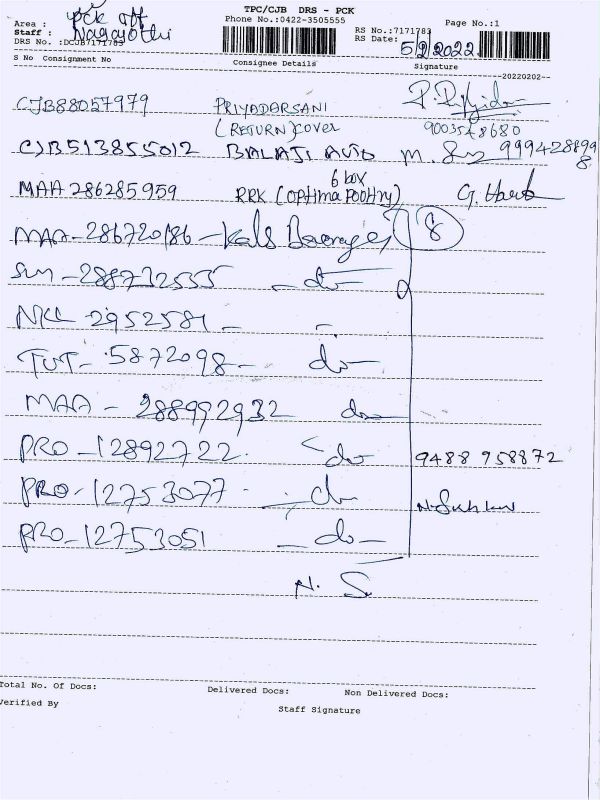 TPC/CJB DRS - PCK
Area : pck off
Phone No.:0422-3505555
Page No.:1
Staff : Nagajothi
RS No.:7171783
DRS No. :DCJB7171783
RS Date: 5/2/2022
S No Consignment No Consignee Details Signature
--20220202--
CJB88057979 PRIYADARSANI
(RETURN) COVER 9003548680
CJB513855012 BALAJI AUTO 9994288998
6 box
MAA 286285959 RRK (OPtima Poottry) G.
MAA-286720186 - Kals 8
-288732555 - do-
NKL-2952581 - -
TUT-5872098- do-
MAA - 288992932 do-
PRO-12892722. do- 9488 958872
PRO-12753077 - do-
PRO-12753051 - do-
N. S
Total No. Of Docs: Delivered Docs: Non Delivered Docs:
Verified By Staff Signature